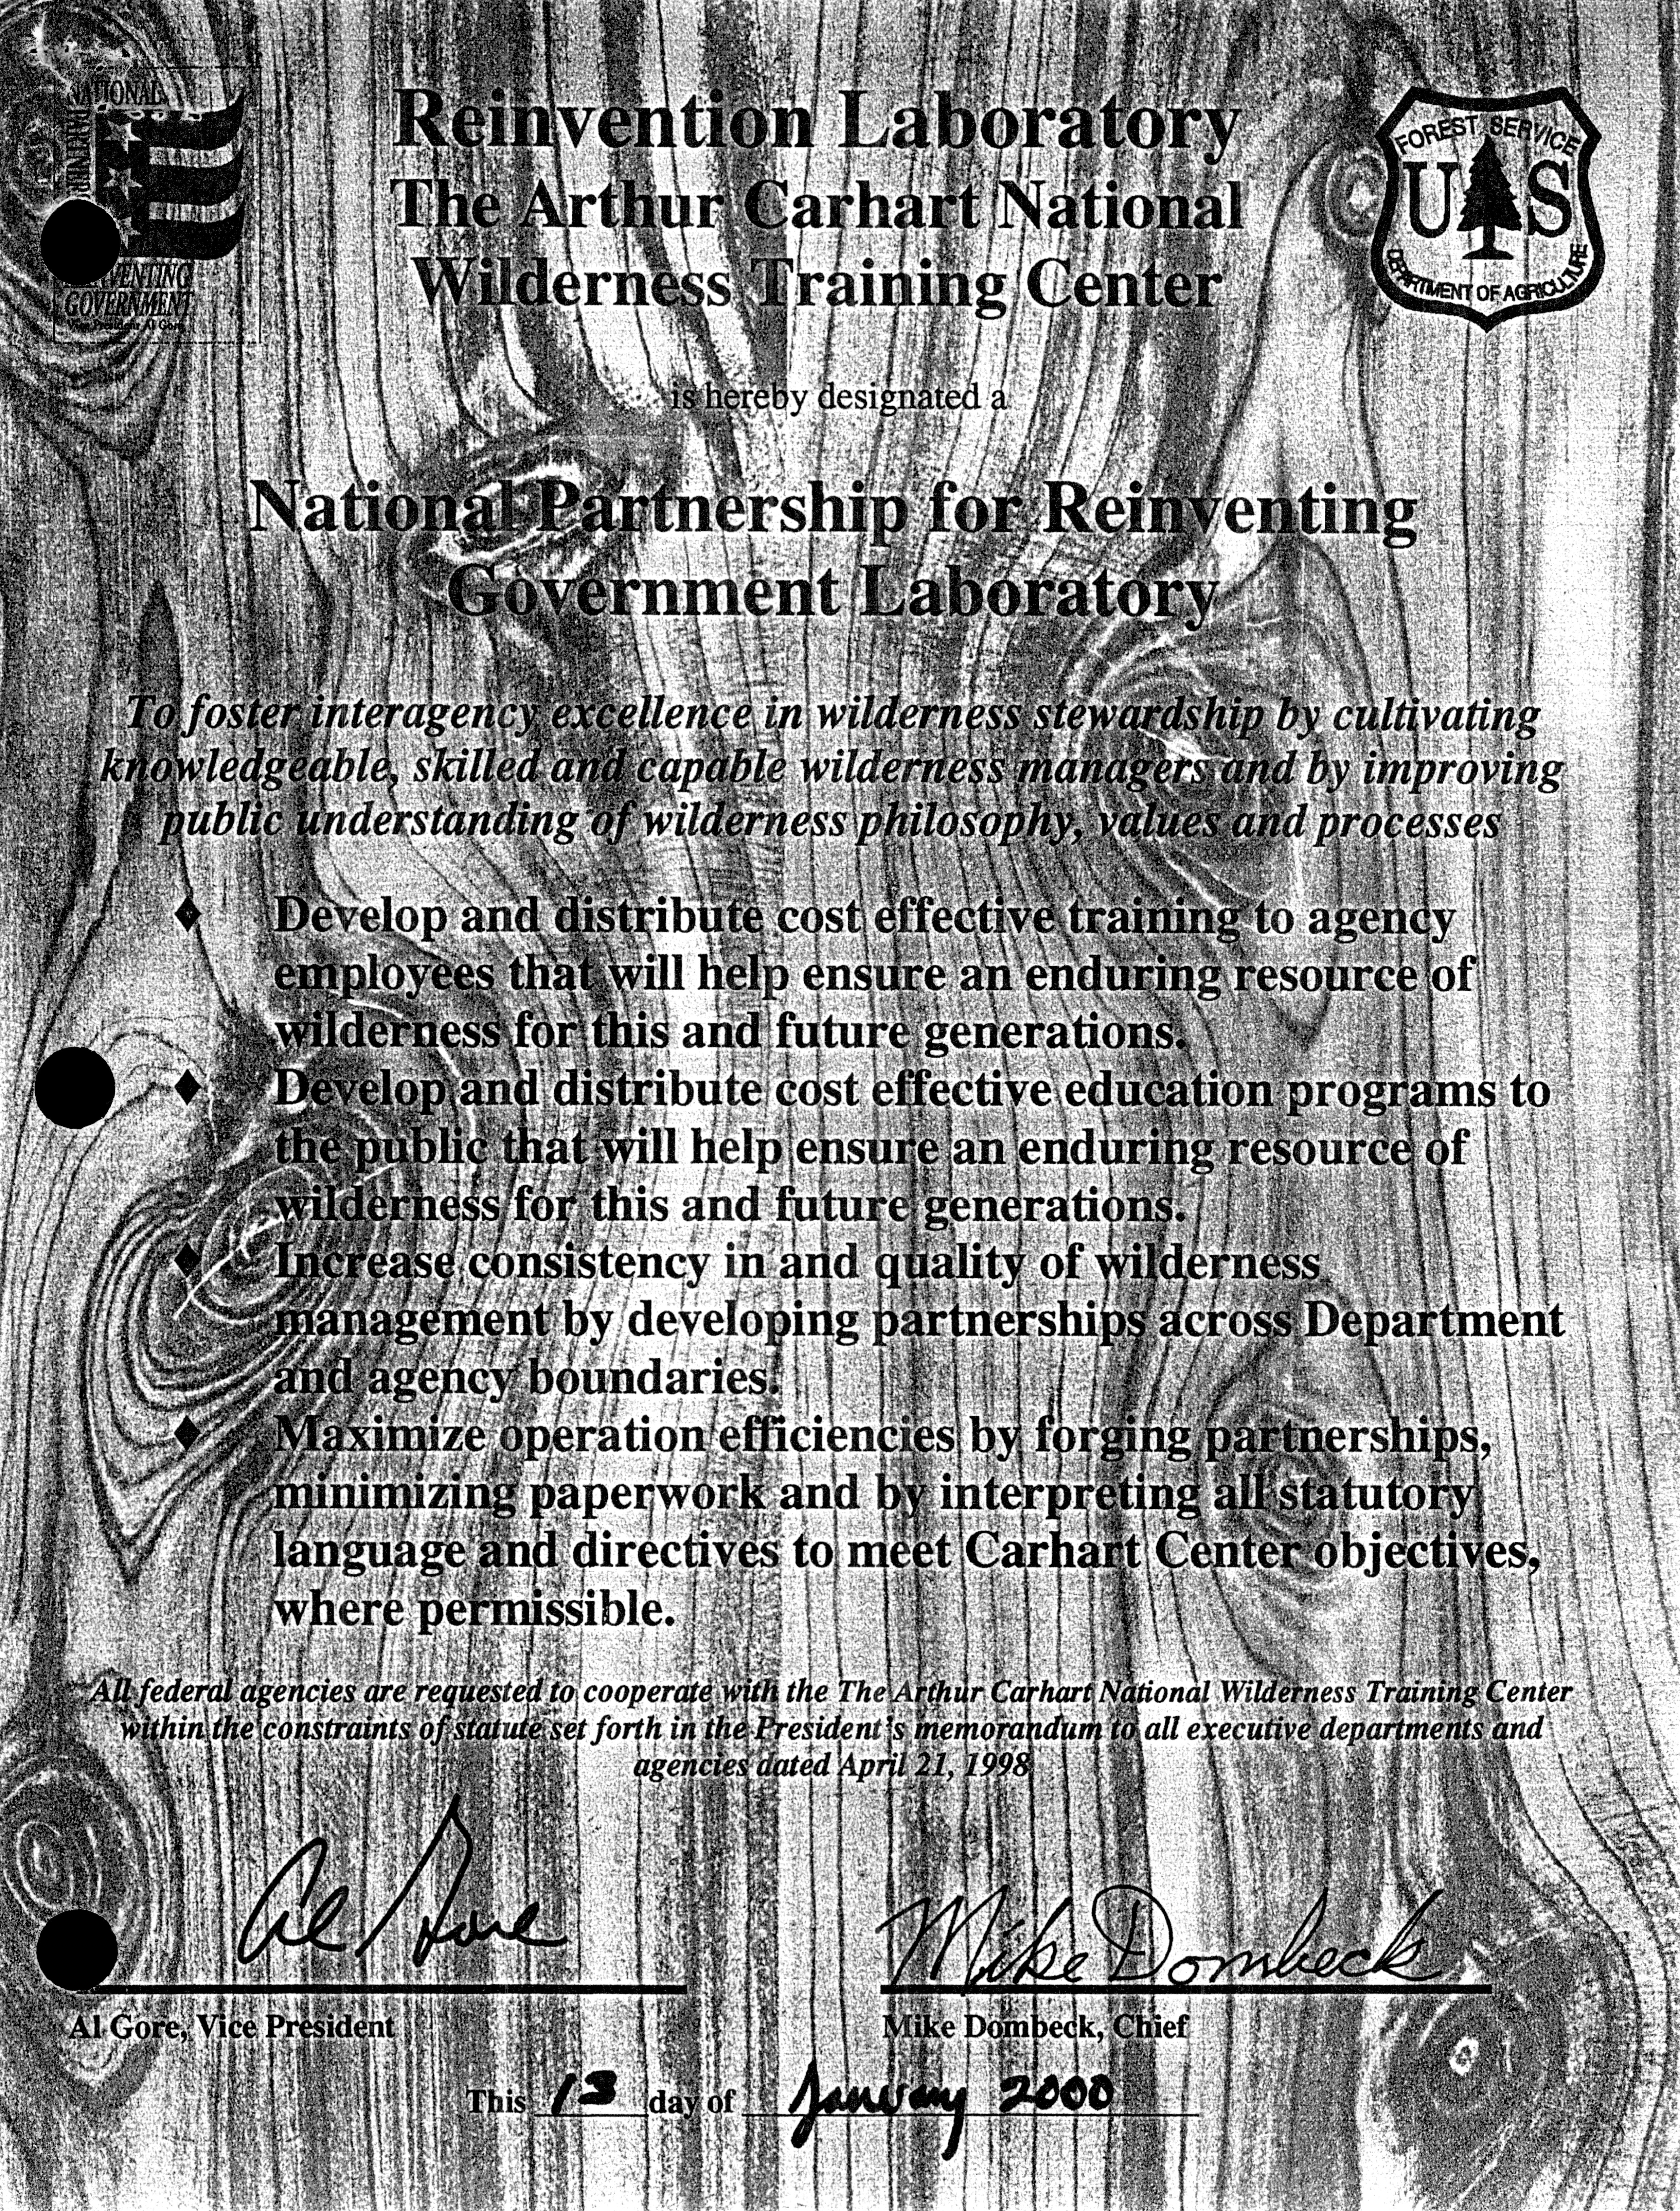 NATIONAL
Reinvention Laboratory
The Arthur Carhart National
Wilderness Training Center
FOREST SERVICE
U S
DEPARTMENT OF AGRICULTURE
GOVERNMENT
Vice President Al Gore
is hereby designated a
National Partnership for Reinventing
Government Laboratory
To foster interagency excellence in wilderness stewardship by cultivating
knowledgeable, skilled and capable wilderness managers and by improving
public understanding of wilderness philosophy, values and processes
♦ Develop and distribute cost effective training to agency
employees that will help ensure an enduring resource of
wilderness for this and future generations.
♦ Develop and distribute cost effective education programs to
the public that will help ensure an enduring resource of
wilderness for this and future generations.
♦ Increase consistency in and quality of wilderness
management by developing partnerships across Department
and agency boundaries.
♦ Maximize operation efficiencies by forging partnerships,
minimizing paperwork and by interpreting all statutory
language and directives to meet Carhart Center objectives,
where permissible.
All federal agencies are requested to cooperate with the The Arthur Carhart National Wilderness Training Center
within the constraints of statute set forth in the President's memorandum to all executive departments and
agencies dated April 21, 1998
Al Gore Mike Dombeck
Al Gore, Vice President Mike Dombeck, Chief
This 13 day of January 2000